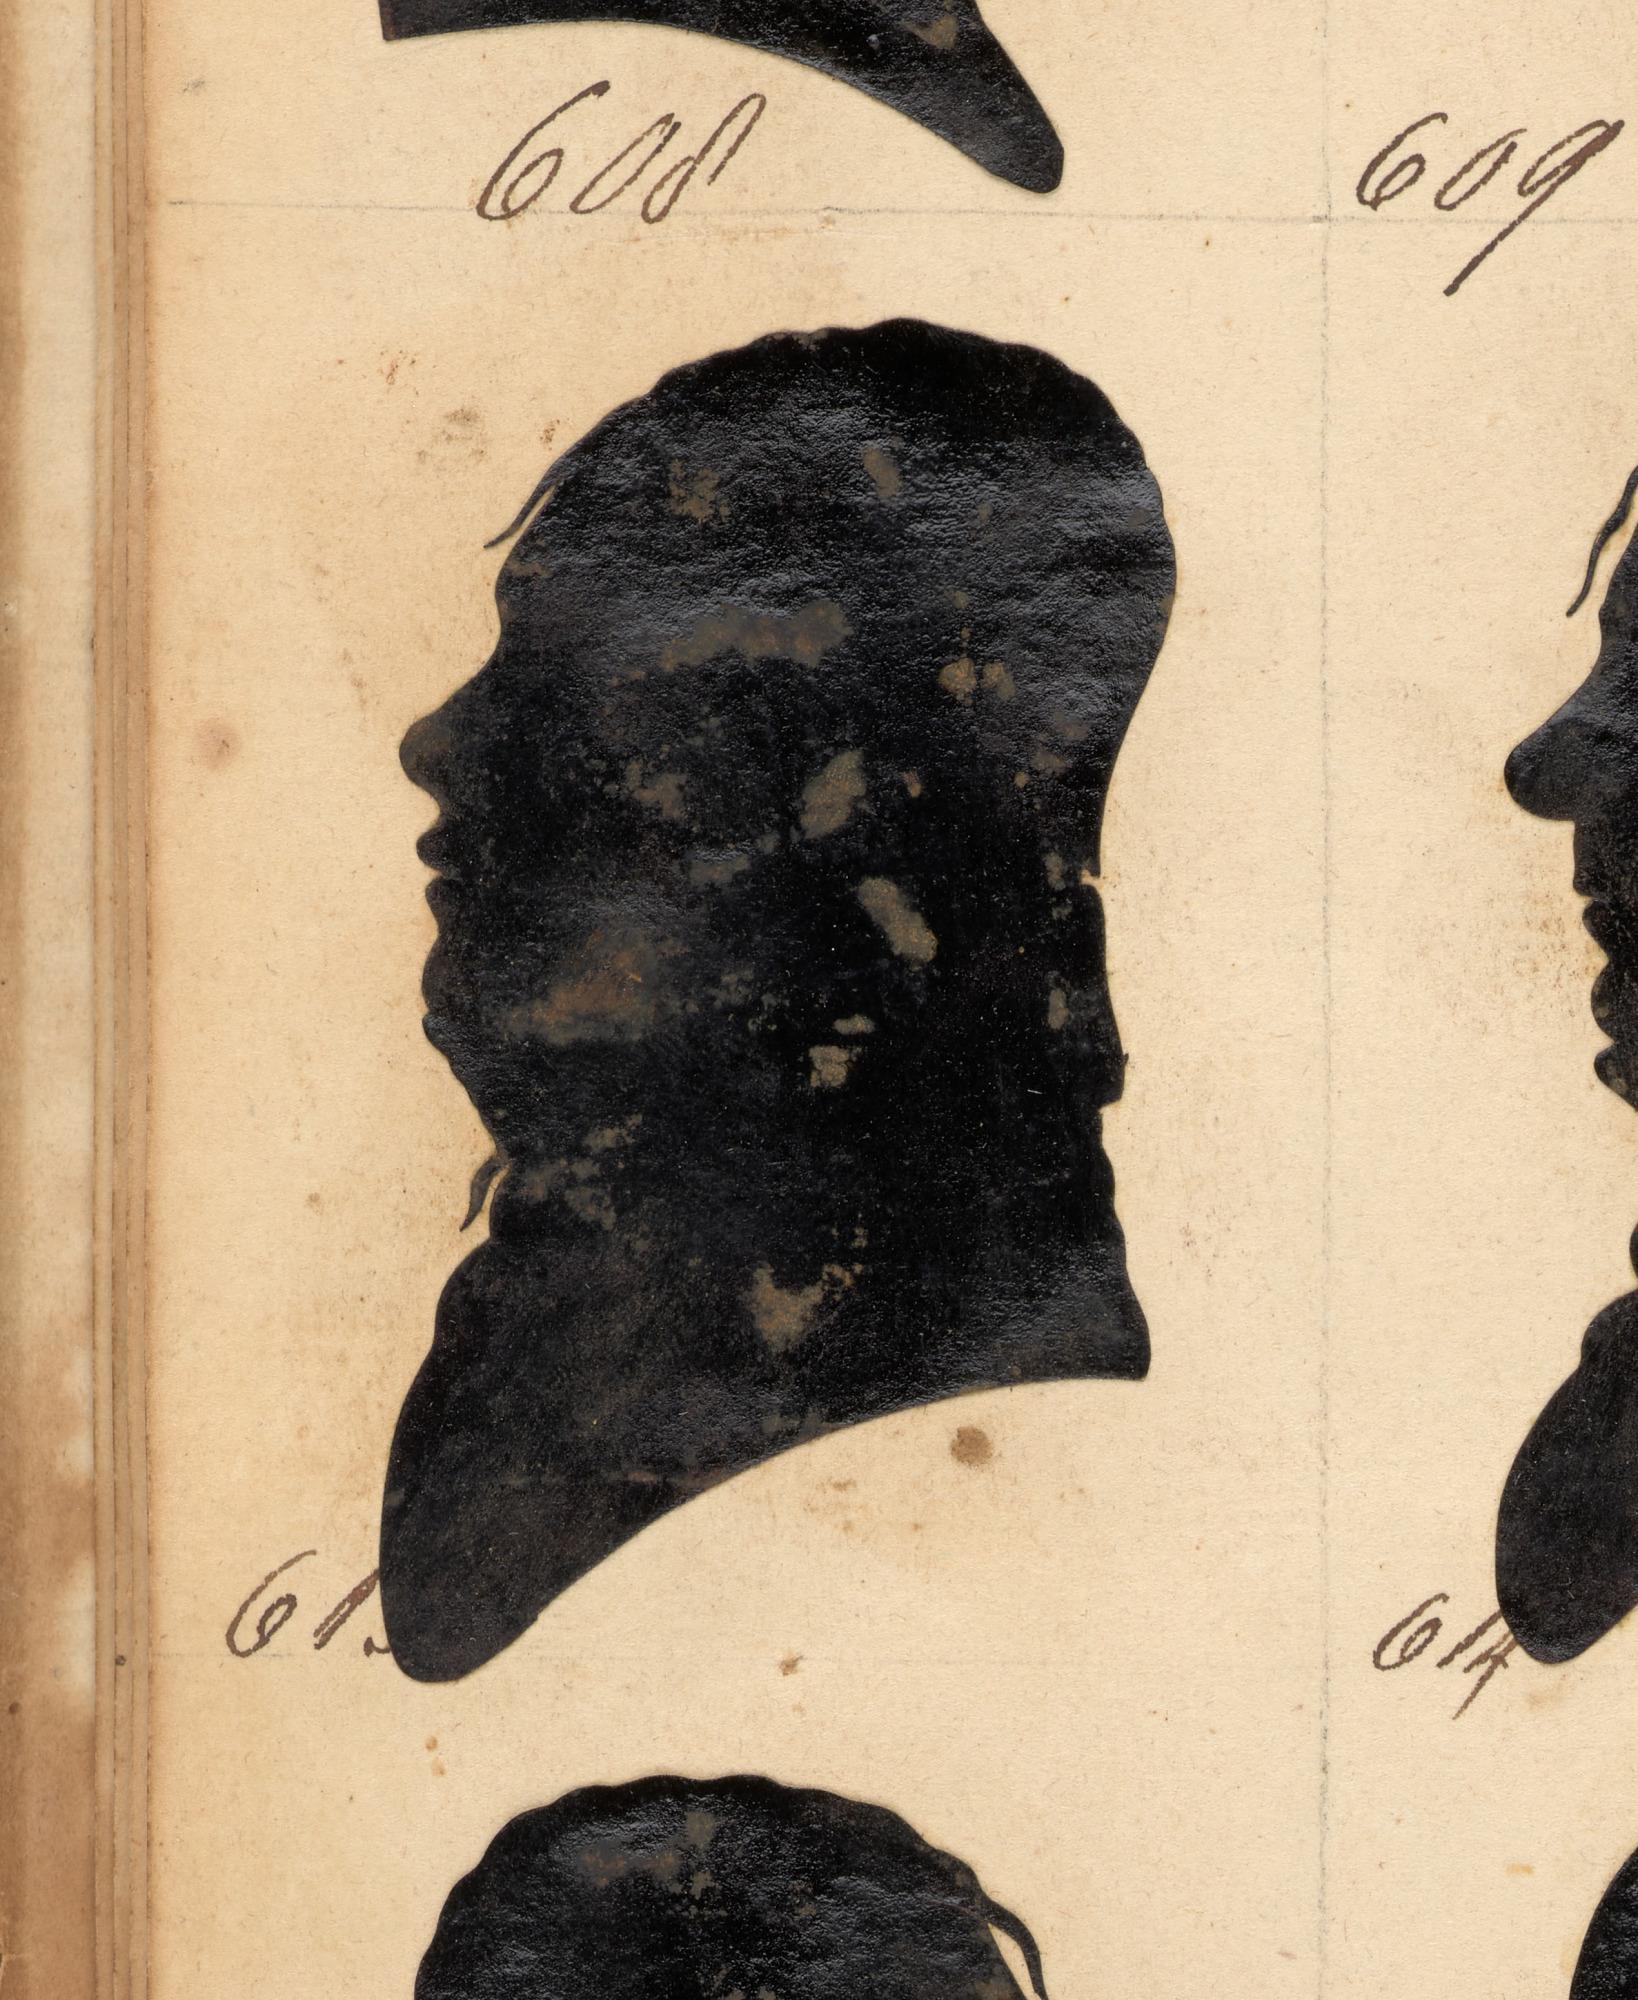 608
609
614